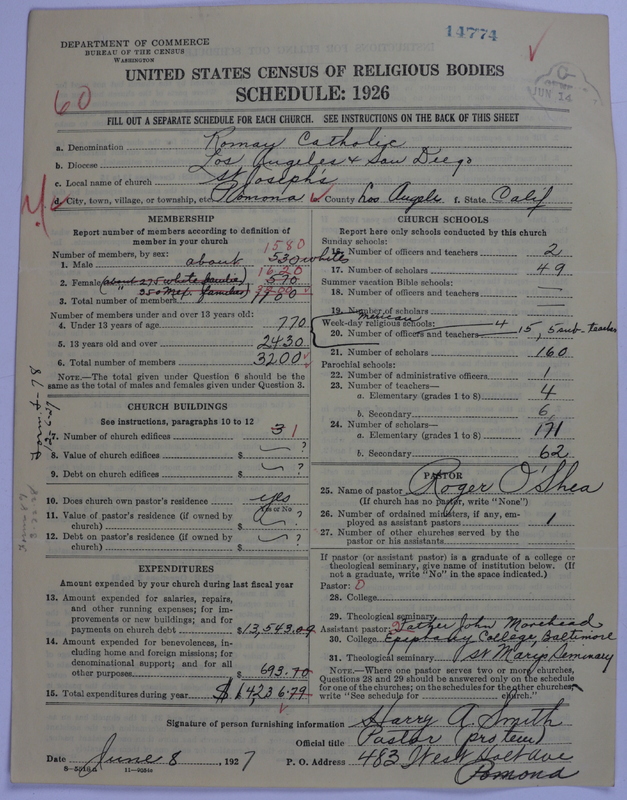 14774
DEPARTMENT OF COMMERCE
BUREAU OF THE CENSUS
WASHINGTON
UNITED STATES CENSUS OF RELIGIOUS BODIES
SCHEDULE: 1926
JUN 14
60
FILL OUT A SEPARATE SCHEDULE FOR EACH CHURCH. SEE INSTRUCTIONS ON THE BACK OF THIS SHEET
a. Denomination Roman Catholic
b. Diocese Los Angeles & San Diego
c. Local name of church St Joseph's
d. City, town, village, or township, etc. Pomona e. County Los Angeles f. State Calif
MEMBERSHIP
Report number of members according to definition of member in your church
Number of members, by sex:
1580
1. Male about 530 whites
1620
2. Female (about 275 white families) 590
350 Mex. families)
3. Total number of members
Number of members under and over 13 years old:
4. Under 13 years of age 770
5. 13 years old and over 2430
6. Total number of members 3200
NOTE.—The total given under Question 6 should be the same as the total of males and females given under Question 3.
CHURCH BUILDINGS
See instructions, paragraphs 10 to 12
7. Number of church edifices 3 1
8. Value of church edifices $ ?
9. Debt on church edifices $ ?
10. Does church own pastor's residence yes
Yes or No
11. Value of pastor's residence (if owned by church) $ ?
12. Debt on pastor's residence (if owned by church) $ ?
EXPENDITURES
Amount expended by your church during last fiscal year
13. Amount expended for salaries, repairs, and other running expenses; for improvements or new buildings; and for payments on church debt $13,543.09
14. Amount expended for benevolences, including home and foreign missions; for denominational support; and for all other purposes 693.70
15. Total expenditures during year $14236.79
CHURCH SCHOOLS
Report here only schools conducted by this church
Sunday schools:
16. Number of officers and teachers 2
17. Number of scholars 49
Summer vacation Bible schools:
18. Number of officers and teachers —
19. Number of scholars —
Mexican
Week-day religious schools:
20. Number of officers and teachers 4 15, 5 sub-teachers
21. Number of scholars 160
Parochial schools:
22. Number of administrative officers 1
23. Number of teachers—
a. Elementary (grades 1 to 8) 4
b. Secondary 6
24. Number of scholars—
a. Elementary (grades 1 to 8) 171
b. Secondary 62
PASTOR
25. Name of pastor Roger O'Shea
(If church has no pastor, write "None")
26. Number of ordained ministers, if any, employed as assistant pastors 1
27. Number of other churches served by the pastor or his assistants
If pastor (or assistant pastor) is a graduate of a college or theological seminary, give name of institution below. (If not a graduate, write "No" in the space indicated.)
Pastor: 0
28. College
29. Theological seminary
Assistant pastor: Father John Morehead
30. College Epiphany College, Baltimore
31. Theological seminary St Marys Seminary
NOTE.—Where one pastor serves two or more churches, Questions 28 and 29 should be answered only on the schedule for one of the churches; on the schedules for the other churches, write "See schedule for church."
Signature of person furnishing information Harry A. Smith
Official title Pastor (pro tem)
Date June 8, 1927 P. O. Address 483 West Holt Ave
Pomona